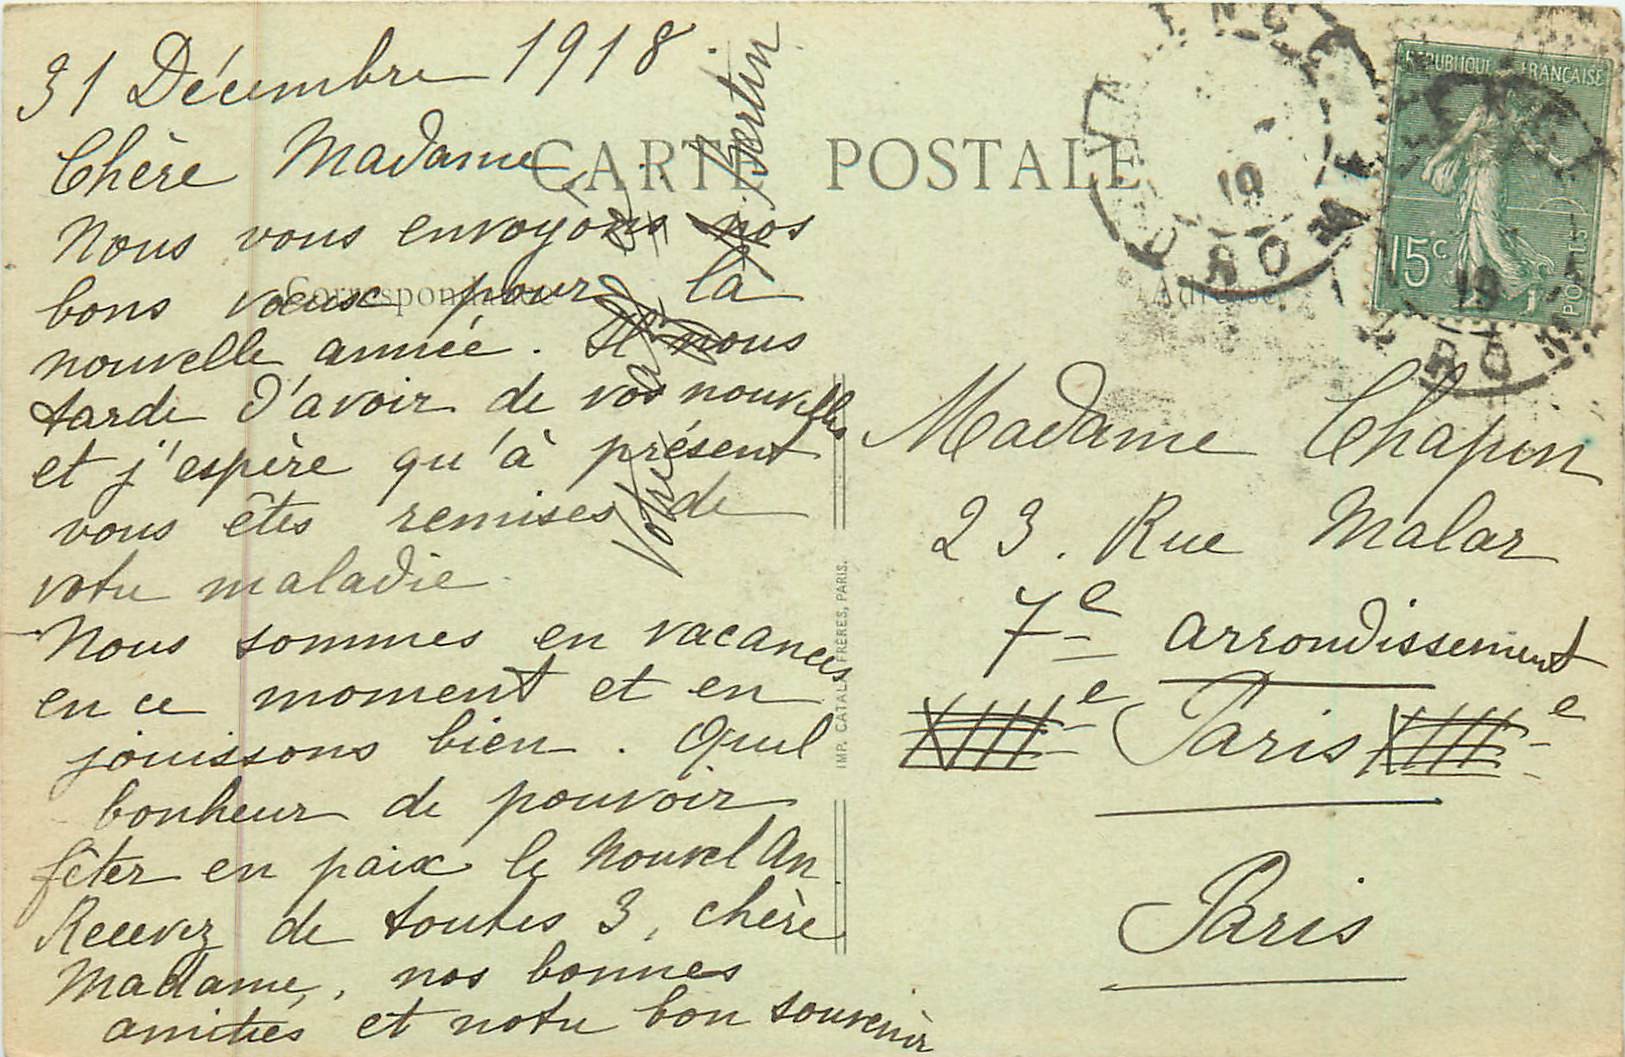 31 Décembre 1918.
Chère Madame,
Nous vous envoyons nos
bons vœux pour la
nouvelle année. Il nous
tarde d'avoir de vos nouvelles
et j'espère qu'à présent
vous êtes remises de
votre maladie.
Nous sommes en vacances
en ce moment et en
jouissons bien. Quel
bonheur de pouvoir
fêter en paix le Nouvel An
Recevez de toutes 3, chère
Madame, nos bonnes
amitiés et notre bon souvenir
Votre
Bertin
CARTE POSTALE
Correspondance
Adresse
IMP. CATALA FRÈRES, PARIS.
REPUBLIQUE FRANÇAISE
15c
POSTES
Madame Chapin
23. Rue Malar
7e arrondissement
XIIIe Paris XIIIe
Paris